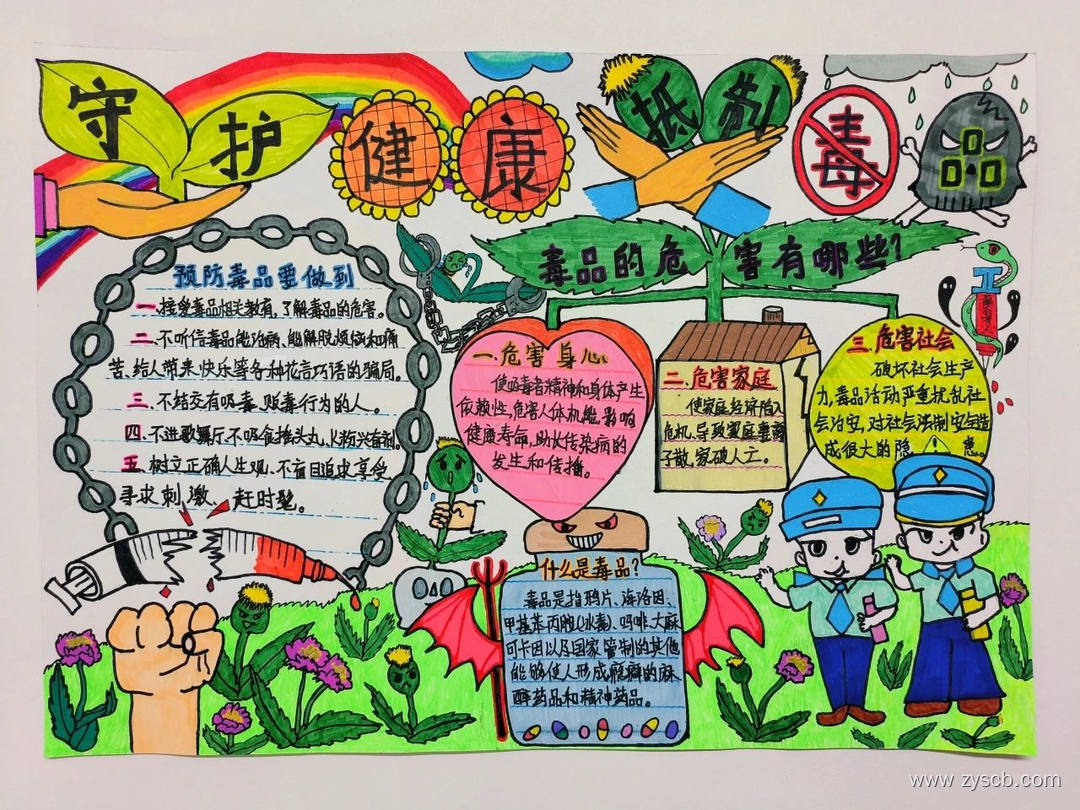 守护健康抵制毒
毒品的危害有哪些?
预防毒品要做到
一.接受毒品相关教育,了解毒品的危害。
二.不听信毒品能治病、能解脱烦恼和痛
苦、给人带来快乐等各种花言巧语的骗局。
三.不结交有吸毒、贩毒行为的人。
四.不进歌舞厅,不吸食摇头丸、K粉兴奋剂。
五.树立正确人生观,不盲目追求享受,
寻求刺激、赶时髦。
一.危害身心
使吸毒者精神和身体产生
依赖性,危害人体机能,影响
健康寿命,助长传染病的
发生和传播。
二.危害家庭
使家庭经济陷入
危机、导致家庭妻离
子散,家破人亡。
三.危害社会
破坏社会生产
力,毒品活动严重扰乱社
会治安,对社会法制安全造
成很大的隐患。
什么是毒品?
毒品是指鸦片、海洛因、
甲基苯丙胺(冰毒)、吗啡、大麻
可卡因以及国家管制的其他
能够使人形成瘾癖的麻
醉药品和精神药品。
www.zyscb.com